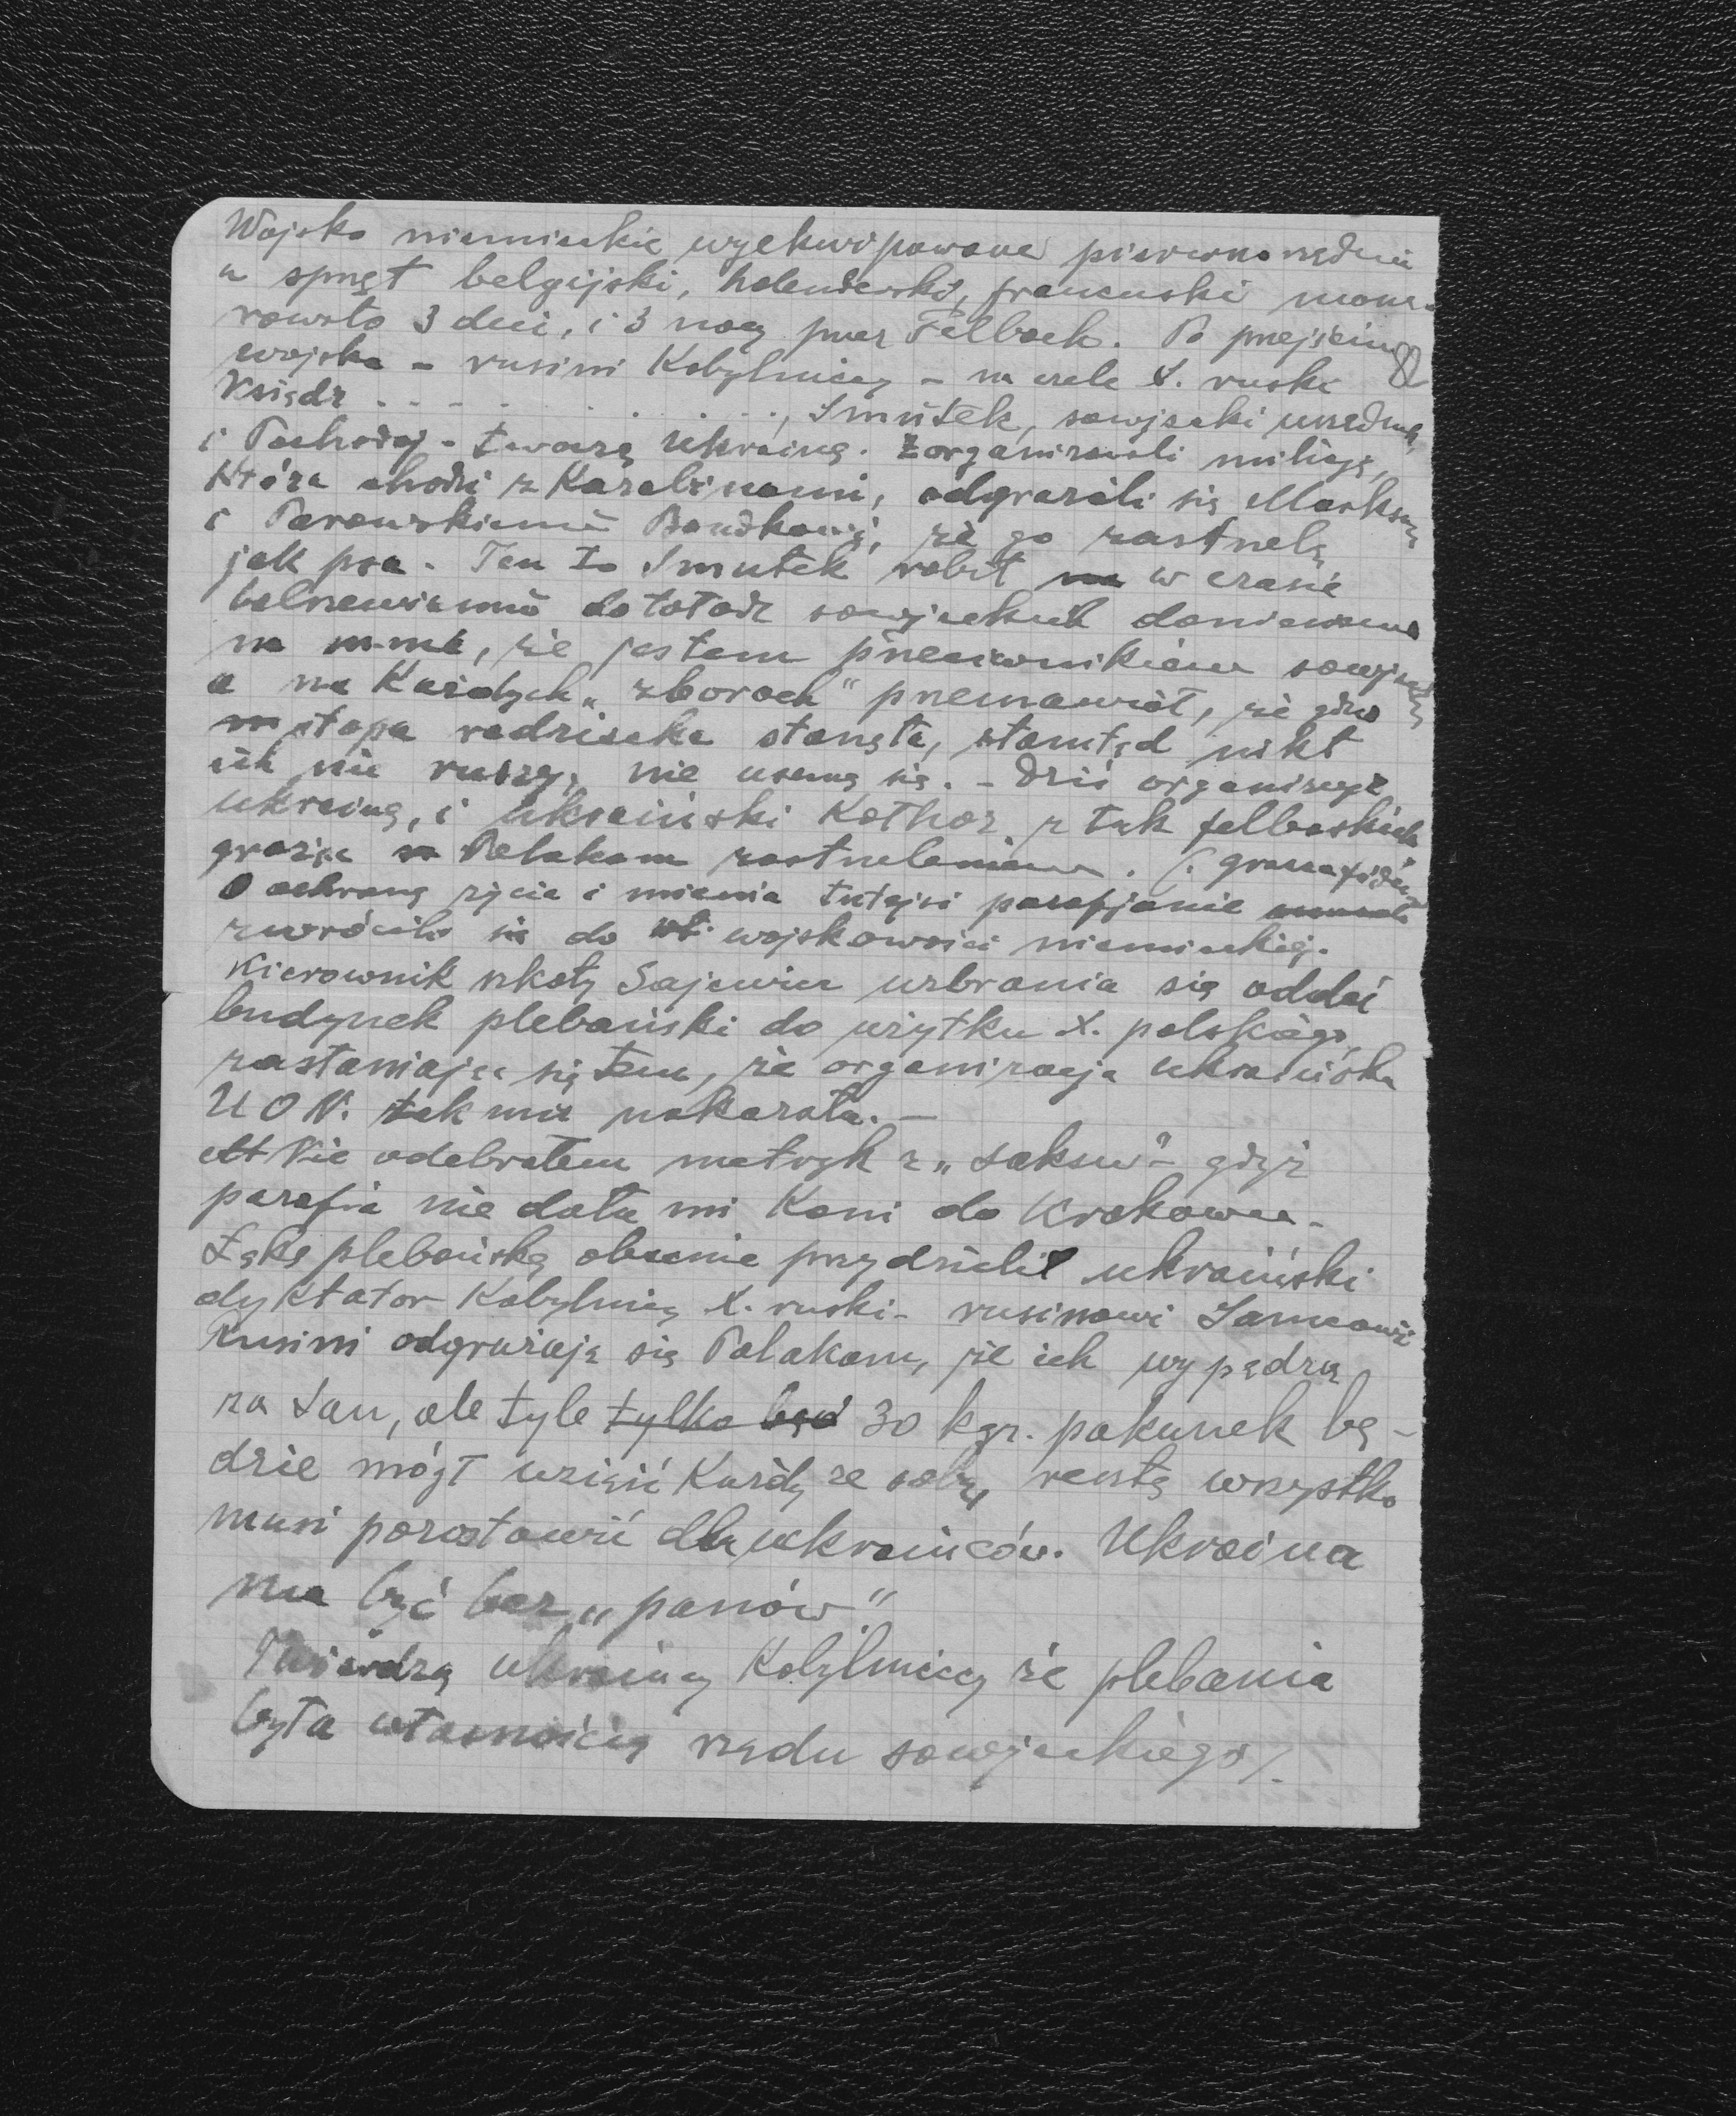 Wojsko niemieckie wyekwipowane pierwszorzędnie
w sprzęt belgijski, holenderski, francuski masze-
rowało 3 dni, i 3 nocy przez Felbach. Po przejściu
wojska – rusini Kobylnicy – na czele X. ruski
Ksiądz . . . . . . . . . . , Smutek, sowjecki urzędnik,
i Pochodaj – tworzą ukrainę. Zorganizowali milicję,
która chodzi z karabinami, odgrażali się
i że go zastrzelą
jak psa. Ten to Smutek robił w czasie
bolszewizmu do władz sowjeckich doniesienia
na mnie, że jestem przeciwnikiem
a na każdych „zborach" przemawiał, że gdzie
stopa radziecka stanęła, stamtąd nikt
ich nie ruszy, nie usuną się. – Dziś organizuje
ukrainę, i ukraiński z tak felbaskich
grożąc Polakom zastrzeleniem.
O ochronę życia i mienia tutejsi parafjanie
zwrócili się do wł. wojskowości niemieckiej.
Kierownik szkoły Sajewicz wzbrania się oddać
budynek plebański do użytku X. polskiego,
zastaniając się tem, że organizacja ukraińska
UON. tak mu nakazała. –
Nie odebrałem metryk z „saksu" – gdyż
parafia nie dała mi koni do Krakowca –
Łąkę plebańską obecnie przydzielił ukraiński
dyktator Kobylnicy X. ruski – rusinowi
Rusini odgrażają się Polakom, że ich wypędzą
za San, ale tyle tylko być 30 kgr. pakunek bę-
dzie mógł wziąść każdy ze sobą, resztę wszystko
musi pozostawić dla ukraińców. Ukraina
ma być bez „panów"
Twierdzą ukraińcy Kobylnicy że plebania
była własnością rządu sowjeckiego/.